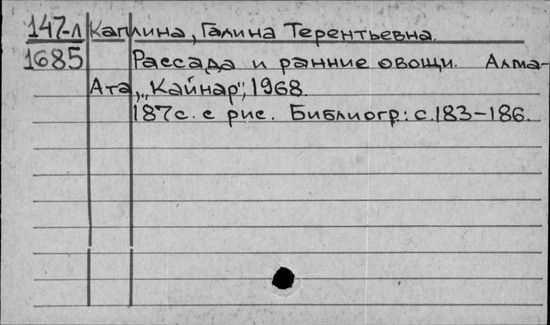 147-л Каплина, Галина Терентьевна.
1685 Рассада и ранние овощи. Алма-
Ата, „Кайнар", 1968.
187с. с рис. Библиогр: с.183-186.